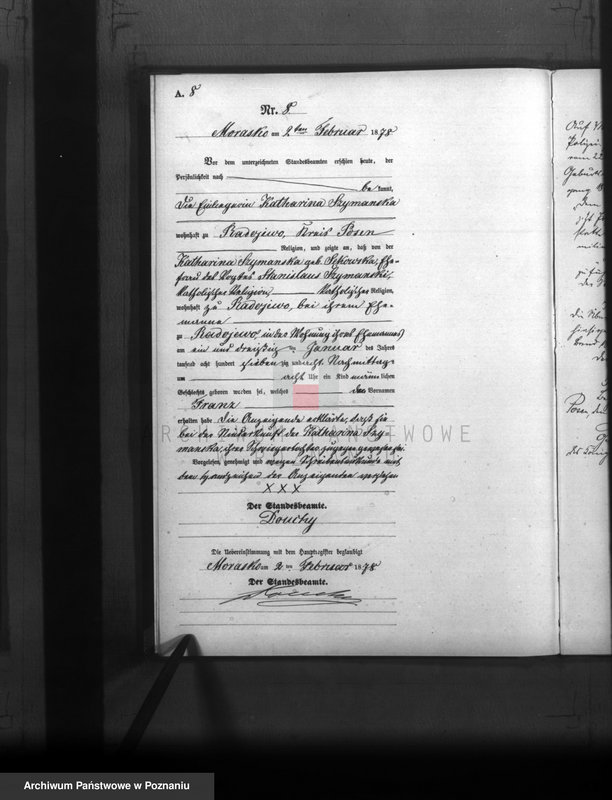 A. 8
Nr. 8
Morasko am 2ten Februar 1878
Vor dem unterzeichneten Standesbeamten erschien heute, der
Persönlichkeit nach
be kannt,
die Einliegerin Katharina Szymanska
wohnhaft zu Radojewo, Kreis Posen
Religion, und zeigte an, daß von der
Katharina Szymanska geb. Sękowska, Ehe-
frau des Vogtes Stanislaus Szymanski,
katholischer Religion, katholischer Religion,
wohnhaft zu Radojewo, bei ihrem Ehe-
manne
zu Radojewo in der Wohnung ihres Ehemannes
am ein und dreißig ten Januar des Jahres
tausend acht hundert sieben zig und acht Nachmittags
um acht Uhr ein Kind männlichen
Geschlechts geboren worden sei, welches den Vornamen
Franz
erhalten habe. Die Anzeigende erklärte, daß sie
bei der Niederkunft der Katharina Szy-
manska, ihrer Schwiegertochter, zugegen gewesen sei.
Vorgelesen, genehmigt und wegen Schreibensunkunde mit
dem Handzeichen der Anzeigenden versehen
XXX
Der Standesbeamte.
Douchy
Die Uebereinstimmung mit dem Hauptregister beglaubigt
Morasko am 2 ten Februar 1878
Der Standesbeamte.
ARCHIWUM PAŃSTWOWE
Auf V
Polizei
vom 22
Geburt
Archiwum Państwowe w Poznaniu